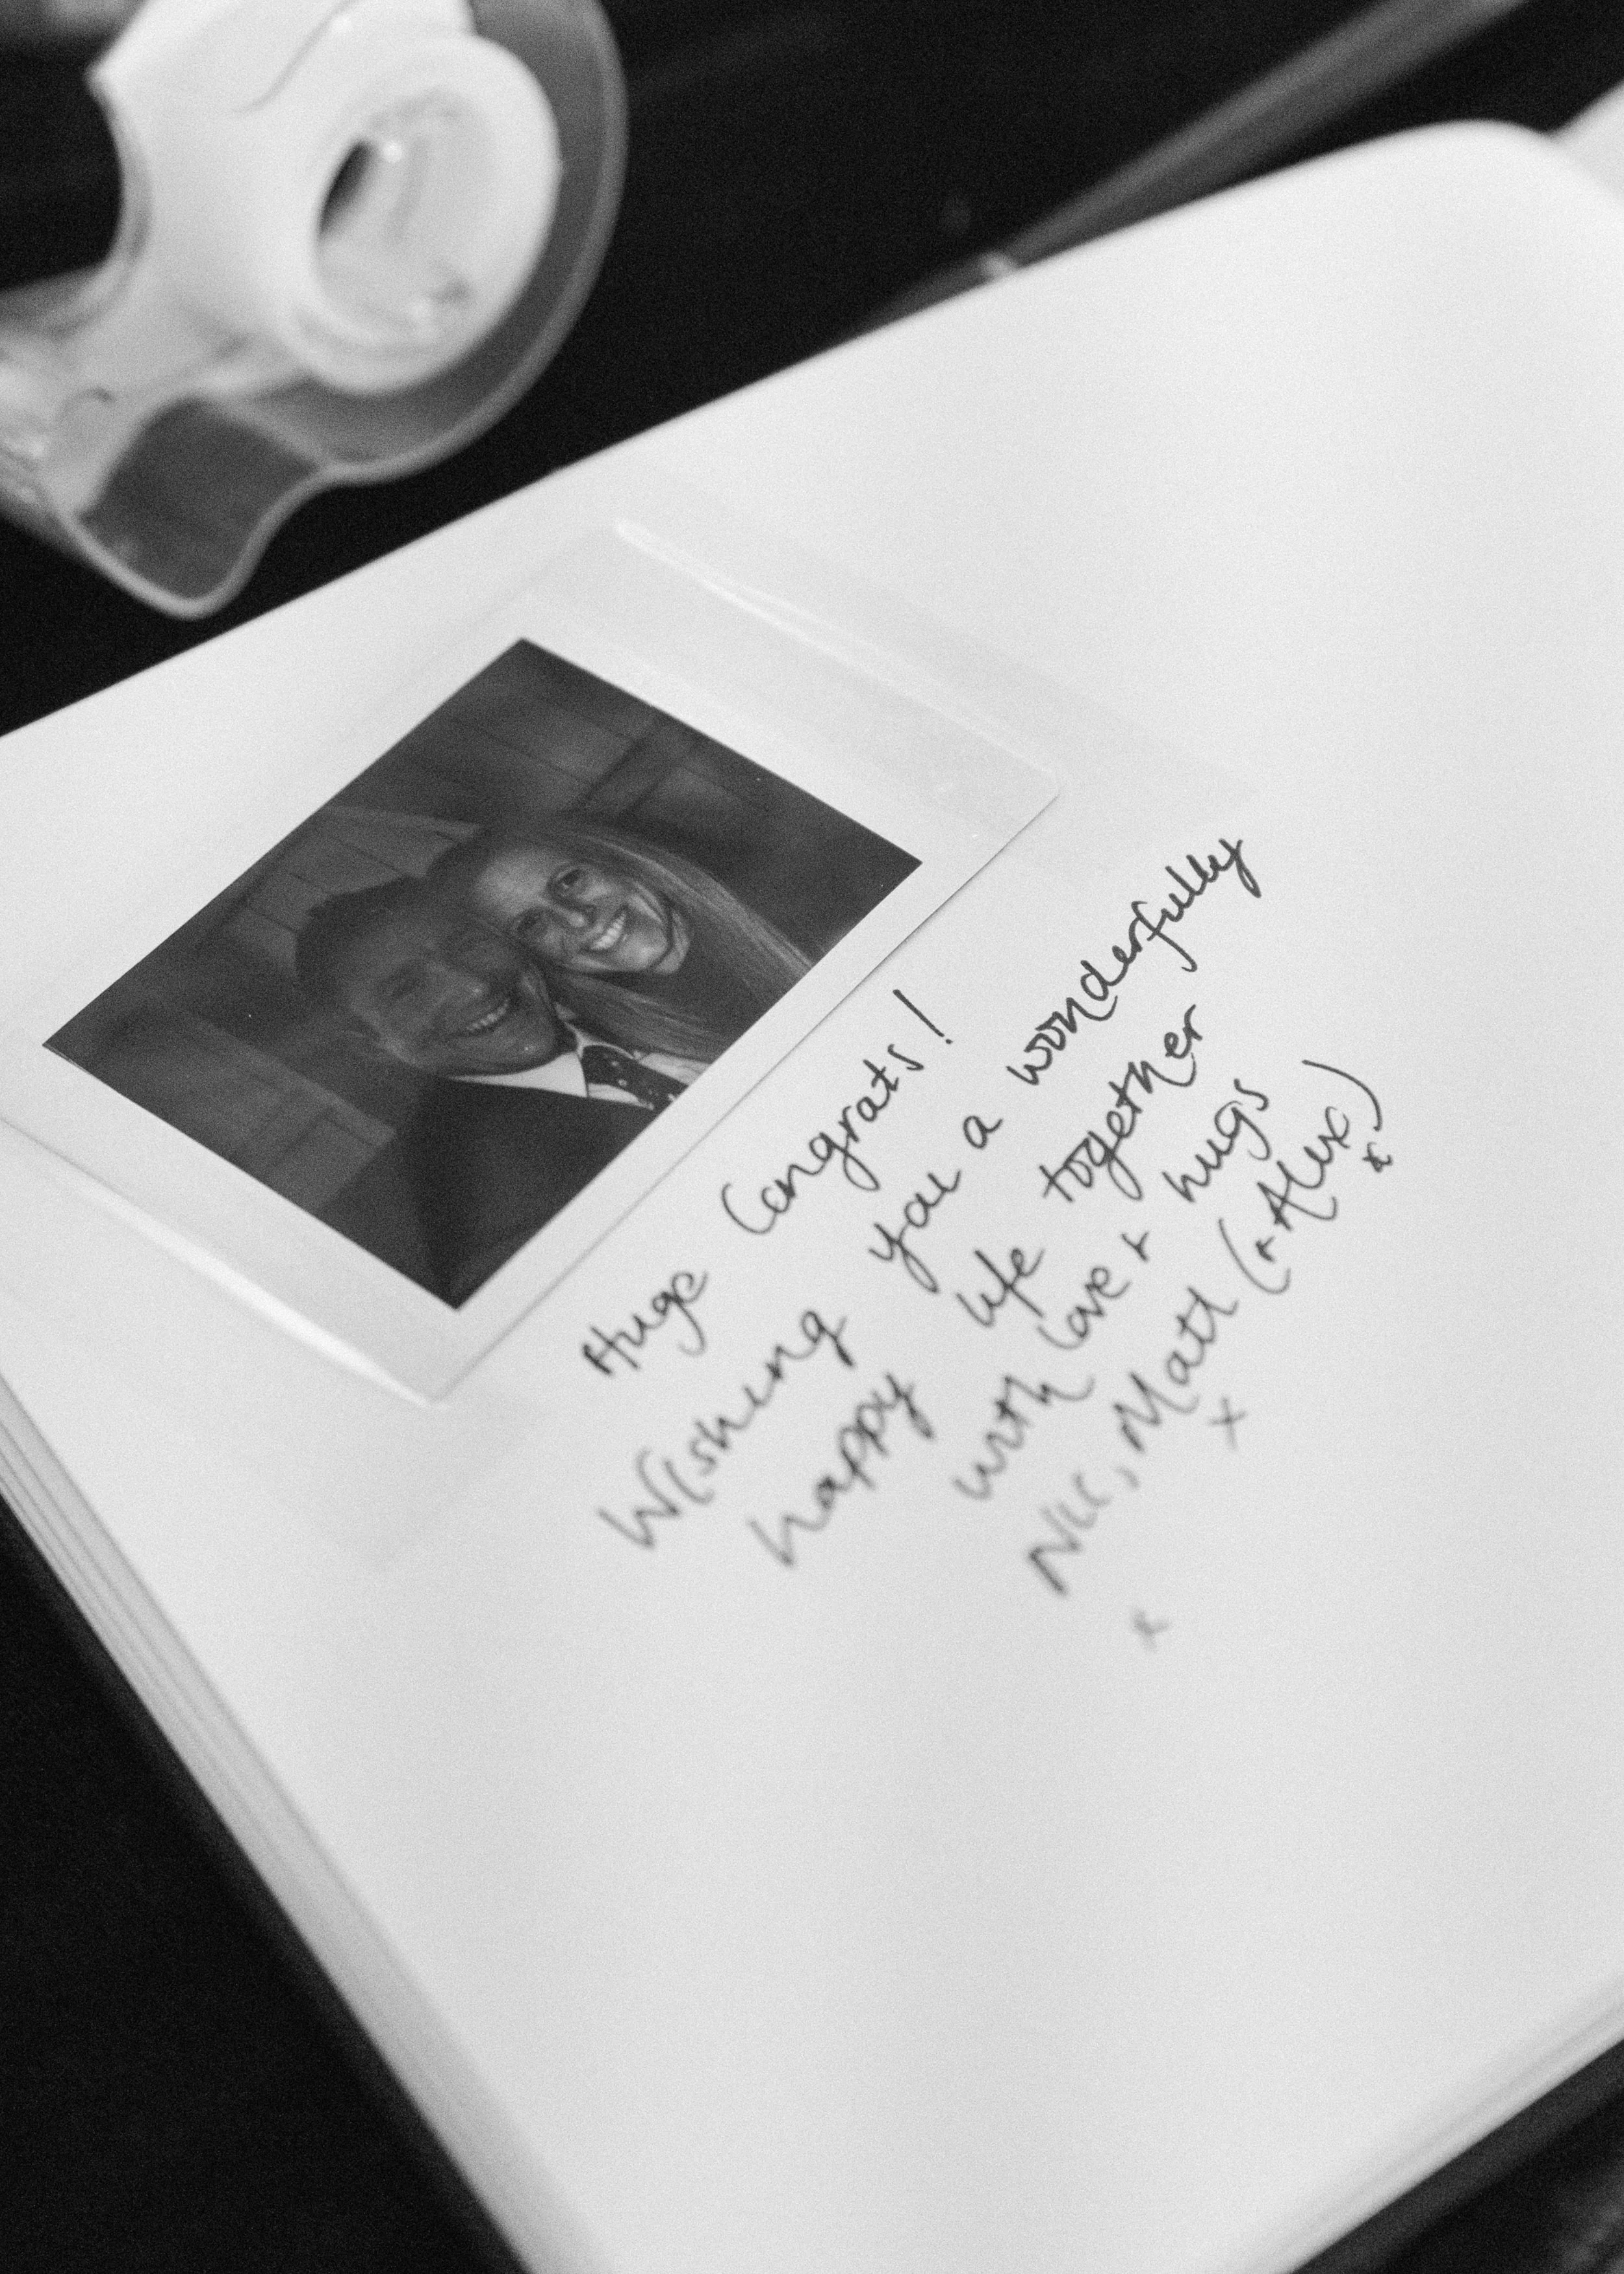 Huge Congrats!
Wishing you a wonderfully
happy life together
with love + hugs
Nic, Matt (+ Alex)
x x x